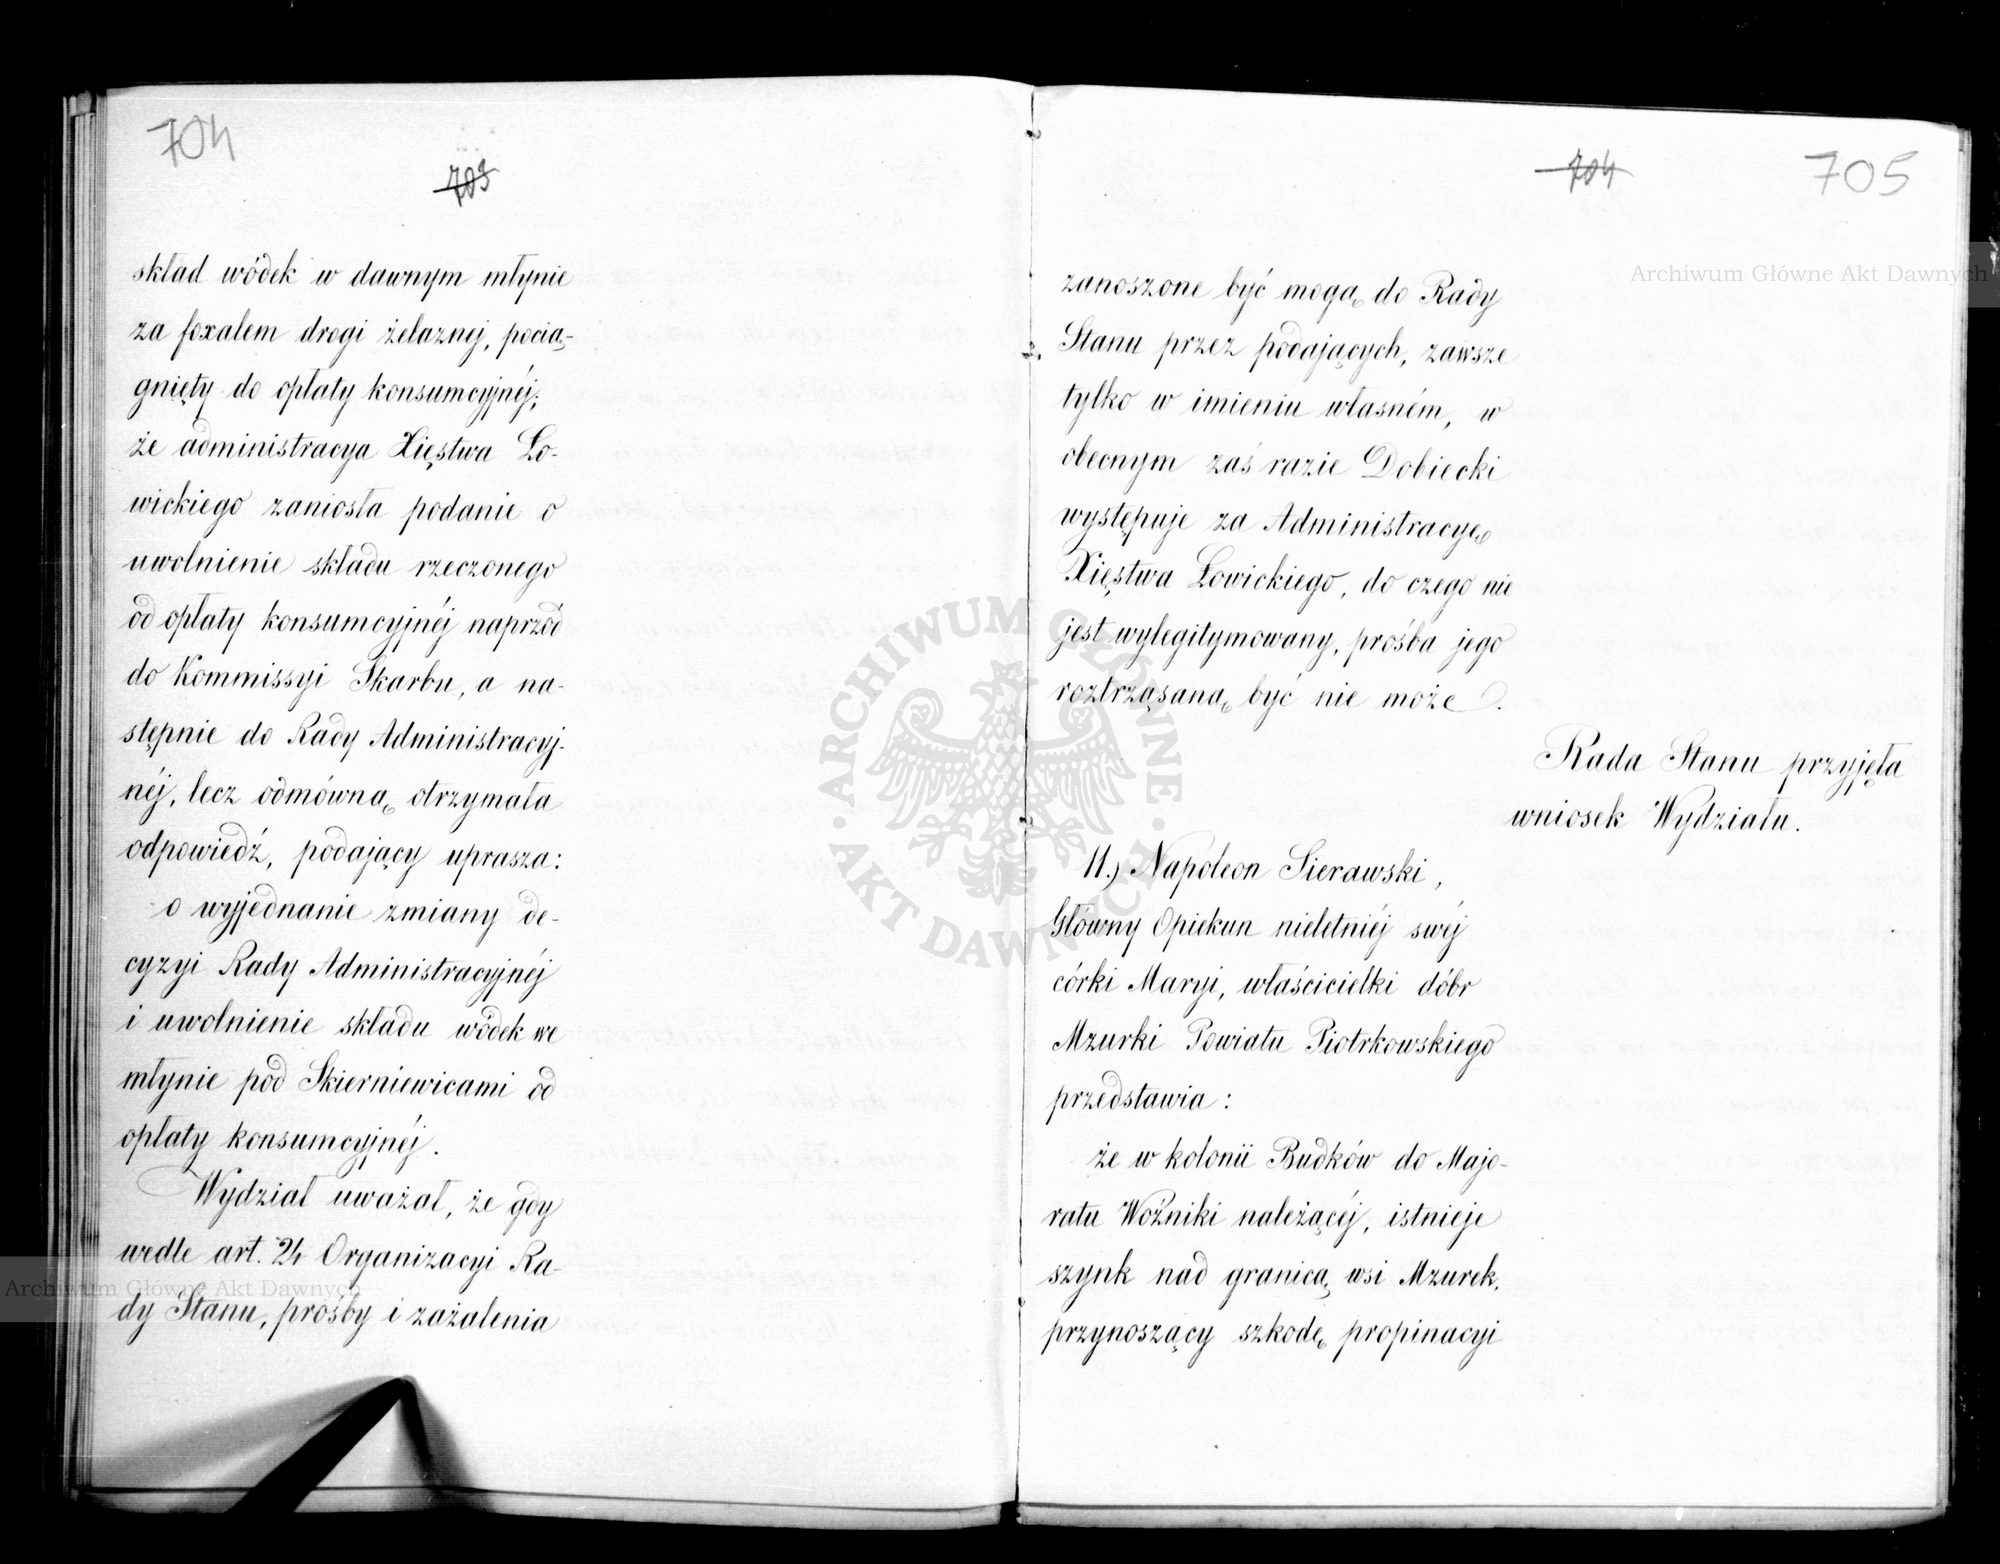 704
703
skład wódek w dawnym młynie
za foxalem drogi żelaznej, pocią-
gnięty do opłaty konsumcyjnéj;
że administracya Xięstwa Ło-
wickiego zaniosła podanie o
uwolnienie składu rzeczonego
od opłaty konsumcyjnéj naprzód
do Kommissyi Skarbu, a na-
stępnie do Rady Administracyj-
néj, lecz odmówną otrzymała
odpowiedź, podający uprasza:
o wyjednanie zmiany de-
cyzyi Rady Administracyjnéj
i uwolnienie składu wódek we
młynie pod Skierniewicami od
opłaty konsumcyjnéj.
Wydział uważał, że gdy
wedle art. 24 Organizacyi Ra-
dy Stanu, prośby i zażalenia
704
705
zanoszone być mogą do Rady
Stanu przez podających, zawsze
tylko w imieniu własném, w
obecnym zaś razie Dobiecki
występuje za Administracyę
Xięstwa Łowickiego, do czego nie
jest wylegitymowany, prośba jego
roztrząsaną być nie może.
Rada Stanu przyjęła
wniosek Wydziału.
11.) Napoleon Sierawski,
Główny Opiekun nieletniéj swéj
córki Maryi, właścicielki dóbr
Mzurki Powiatu Piotrkowskiego
przedstawia:
że w kolonii Budków do Majo-
ratu Woźniki należącéj, istnieje
szynk nad granicą wsi Mzurek,
przynoszący szkodę propinacyi
Archiwum Główne Akt Dawnych
Archiwum Główne Akt Dawnych
ARCHIWUM GŁÓWNE
AKT DAWNYCH